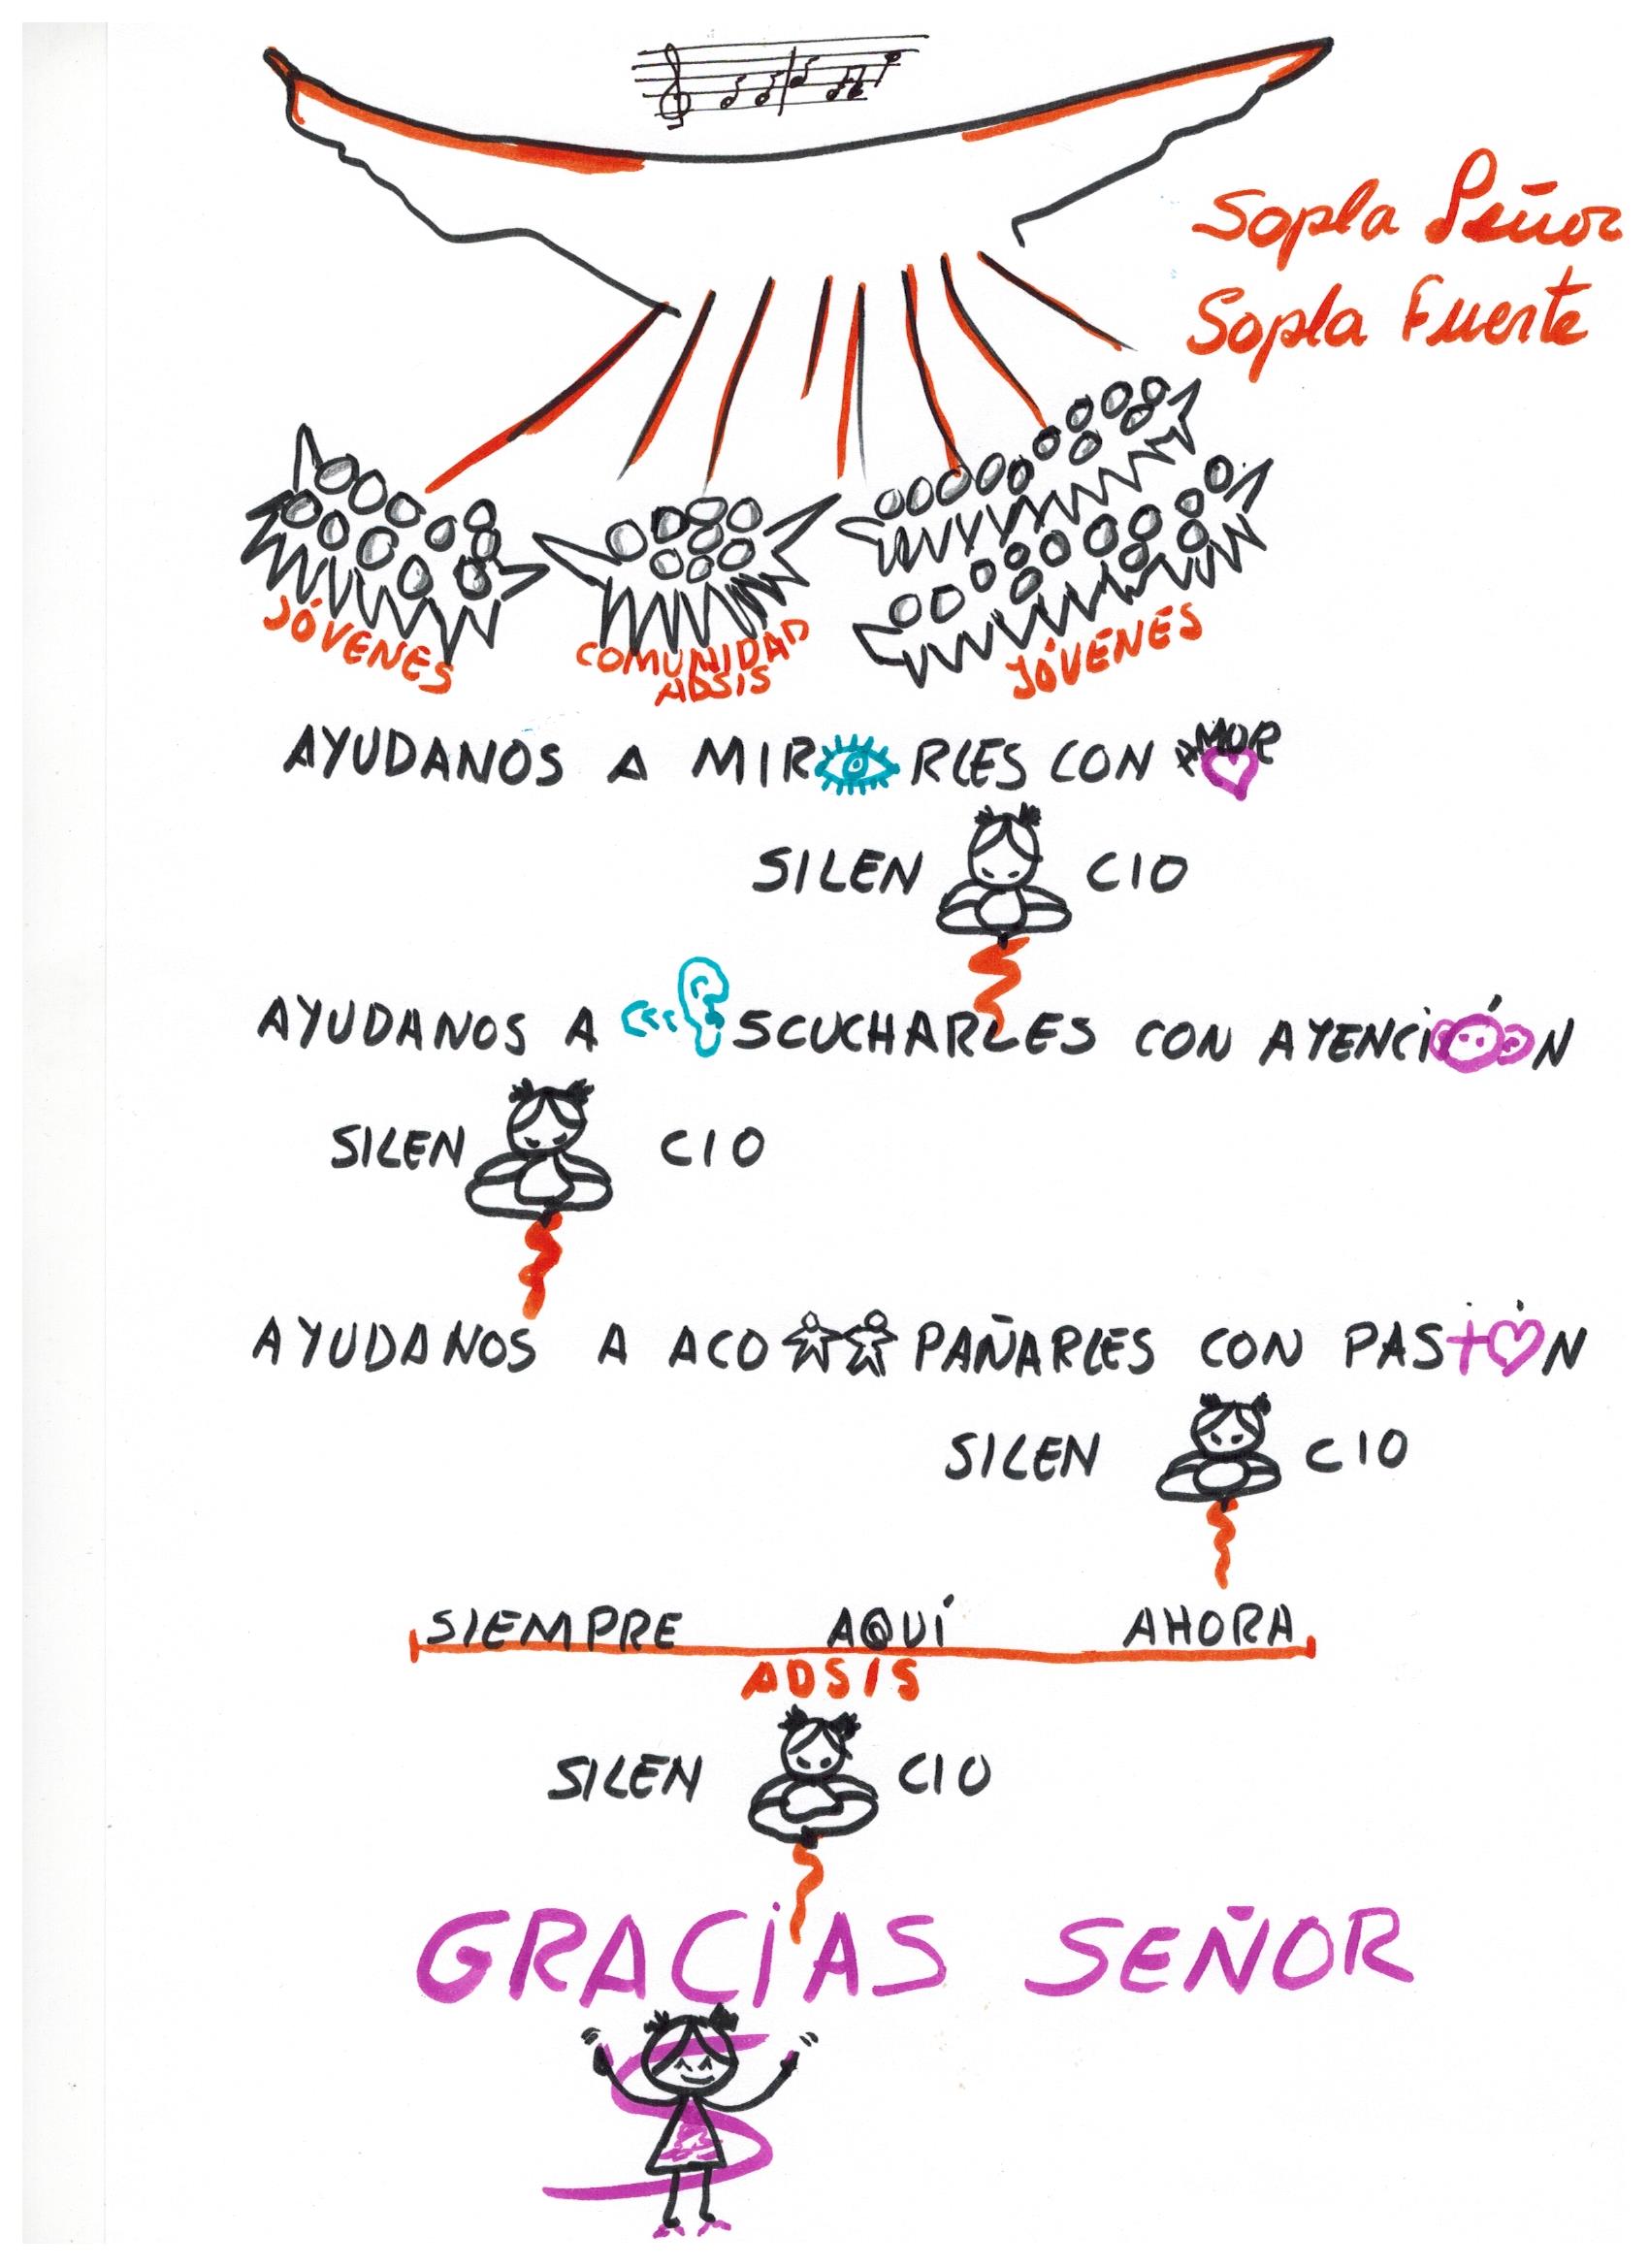 Sopla Señor
Sopla Fuerte
JÓVENES
COMUNIDAD
ADSIS
JÓVENES
AYUDANOS A MIRARLES CON AMOR
SILENCIO
AYUDANOS A ESCUCHARLES CON ATENCIÓN
SILENCIO
AYUDANOS A ACOMPAÑARLES CON PASIÓN
SILENCIO
SIEMPRE AQUÍ AHORA
ADSIS
SILENCIO
GRACIAS SEÑOR